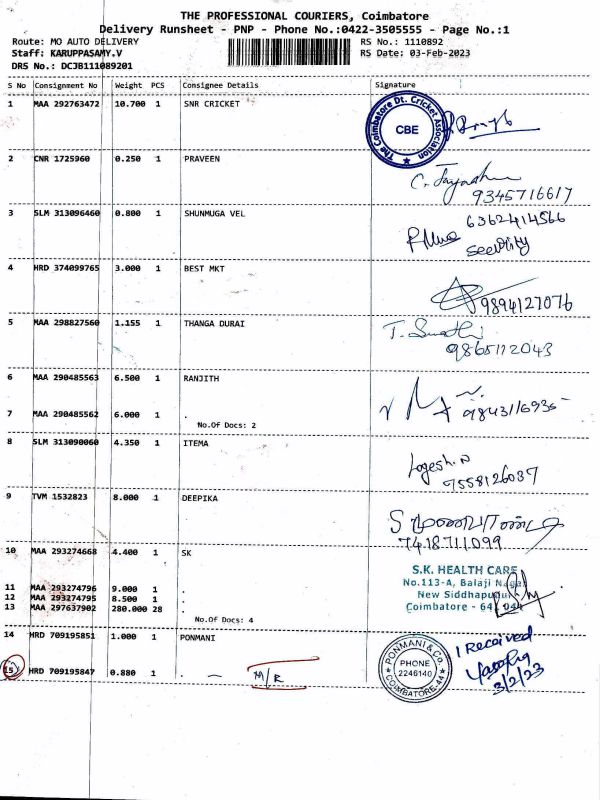 THE PROFESSIONAL COURIERS, Coimbatore
Delivery Runsheet - PNP - Phone No.:0422-3505555 - Page No.:1
Route: MO AUTO DELIVERY RS No.: 1110892
Staff: KARUPPASAMY.V RS Date: 03-Feb-2023
DRS No.: DCJB111089201
S No Consignment No Weight PCS Consignee Details Signature
1 MAA 292763472 10.700 1 SNR CRICKET
The Coimbatore Dt. Cricket Association
CBE
2 CNR 1725960 0.250 1 PRAVEEN
9345716617
3 SLM 313096460 0.800 1 SHUNMUGA VEL
6362414566
security
4 HRD 374099765 3.000 1 BEST MKT
9894127076
5 MAA 298827560 1.155 1 THANGA DURAI
9865112043
6 MAA 290485563 6.500 1 RANJITH
7 MAA 290485562 6.000 1 .
9843116935
No.Of Docs: 2
8 SLM 313090060 4.350 1 ITEMA
Logesh.N
7558126037
9 TVM 1532823 8.000 1 DEEPIKA
7418711099
10 MAA 293274668 4.400 1 SK
S.K. HEALTH CARE
No.113-A, Balaji Nagar
New Siddhapudur
Coimbatore - 641 044
11 MAA 293274796 9.000 1 .
12 MAA 293274795 8.500 1 .
13 MAA 297637902 280.000 28 .
No.Of Docs: 4
14 HRD 709195851 1.000 1 PONMANI
PONMANI & Co.
PHONE
2246140
COIMBATORE-44
I Received
3/2/23
15 HRD 709195847 0.880 1 . - M/R